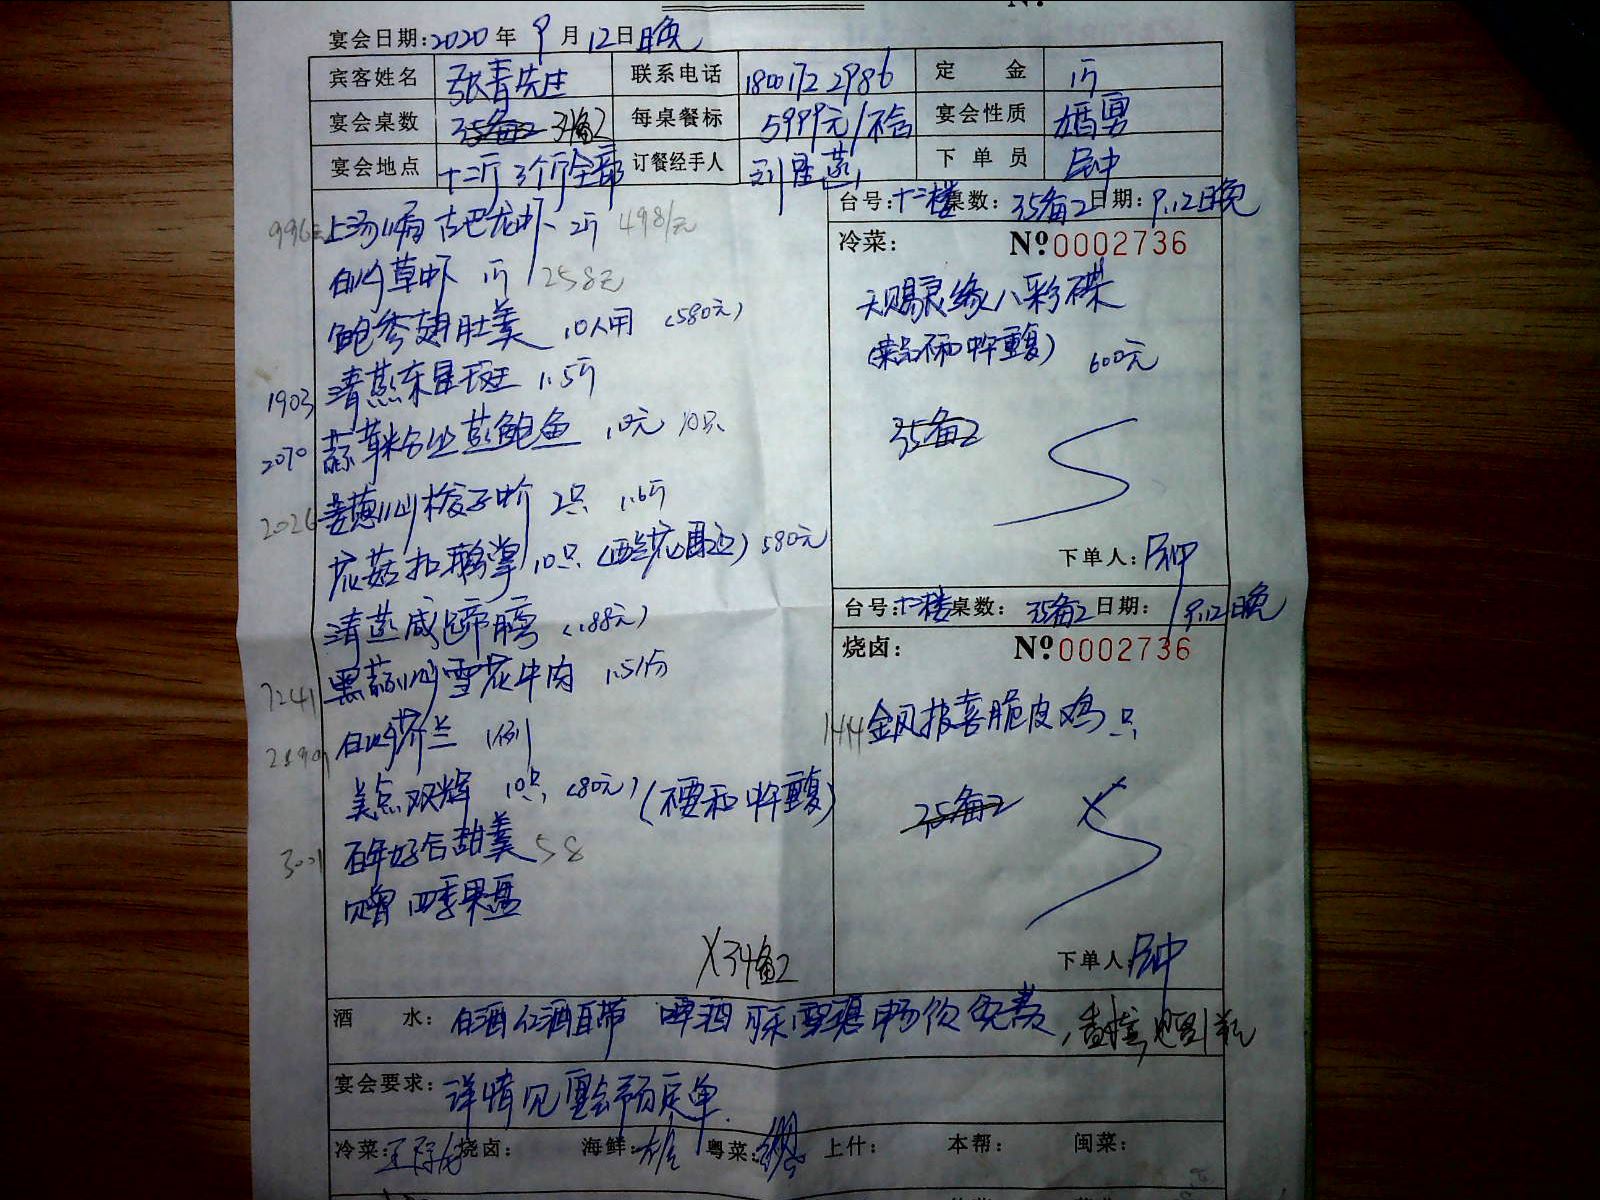 宴会日期:2020年9月12日晚
宾客姓名 张青先生 联系电话 18001722986 定 金
宴会桌数 35备2 34备2 每桌餐标 5999元/不含 宴会性质 婚宴
宴会地点 十二厅3个厅全部 订餐经手人 刘星燕 下单员
台号:十二楼 桌数:35备2 日期:9.12日晚
上汤焗古巴龙虾 2斤 498/元
白灼草虾 1斤 258元
鲍参翅肚羹 10人用 (580元)
1903 清蒸东星斑 1.5斤
2070 蒜茸粉丝蒸鲍鱼 10元 10只
姜葱炒梭子蟹 2只 1.6斤
花菇扣鹅掌 10只 (西兰花围边) 580元
清蒸咸蹄膀 (188元)
7241 黑蒜炒雪花牛肉 1.5份
白灼芥兰 1例
美点双辉 10只 (80元) (不要和中午重复)
3001 百年好合甜羹 58
赠四季果盘
X34备2
冷菜: №0002736
天赐良缘八彩碟
(菜品不和中午重复) 600元
35备2
下单人:
台号:十二楼 桌数:35备2 日期:9.12日晚
烧卤: №0002736
金凤报喜脆皮鸡 1只
35备2
下单人:
酒 水: 白酒红酒自带 啤酒可乐雪碧畅饮免费
宴会要求: 详情见宴会预定单.
冷菜: 烧卤: 海鲜: 粤菜: 上什: 本帮: 闽菜: